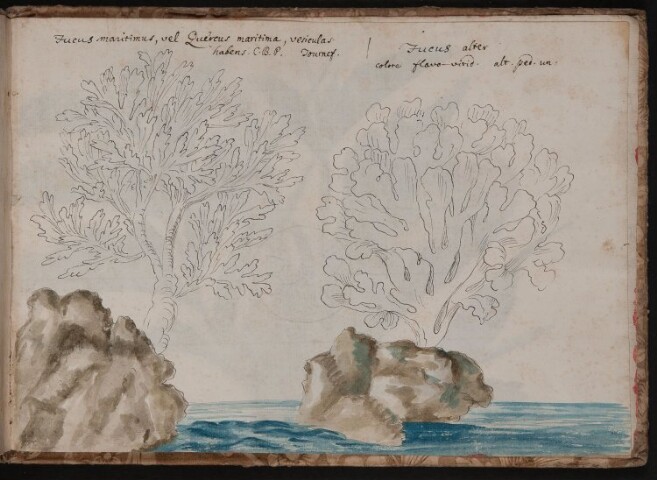 Fucus maritimus, vel Quercus maritima, vesiculas
habens. C.B.P. Tournef.
Fucus alter
colore flavo-virid. alt. ped. un.